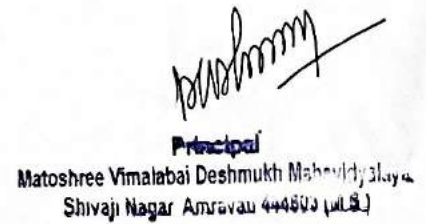 Principal
Matoshree Vimalabai Deshmukh Mahavidyalaya
Shivaji Nagar Amravati 444603 (M.S.)